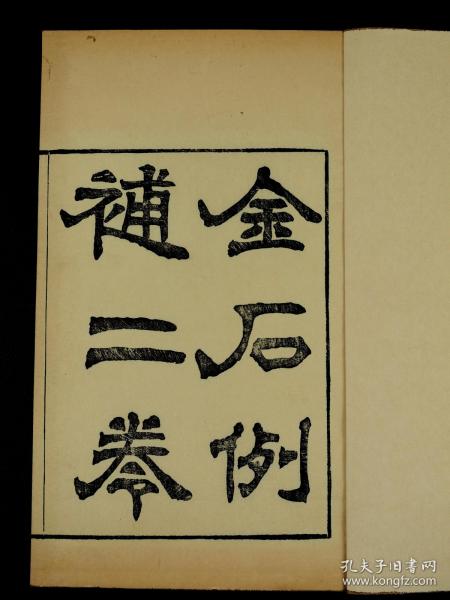 金石例
補二卷
孔夫子旧书网
www.kongfz.com